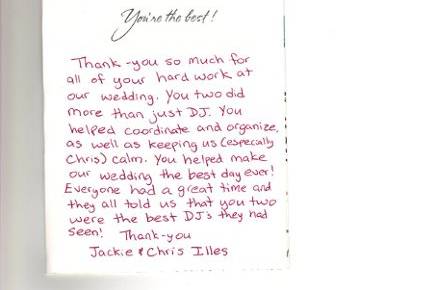 You're the best!
Thank-you so much for
all of your hard work at
our wedding. You two did
more than just DJ. You
helped coordinate and organize,
as well as keeping us (especially
Chris) calm. You helped make
our wedding the best day ever!
Everyone had a great time and
they all told us that you two
were the best DJ's they had
seen! Thank-you
Jackie & Chris Illes